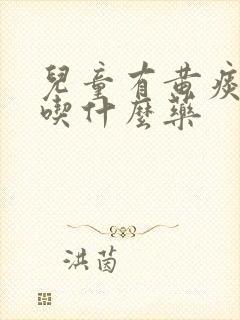 兒童有黃痰
喫什麼藥
洪茵